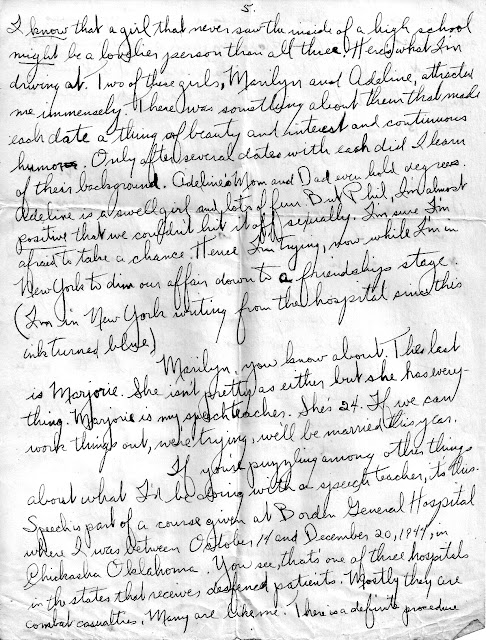 5.
I know that a girl that never saw the inside of a high school
might be a lovelier person than all three. Here's what I'm
driving at. Two of these girls, Marilyn and Adeline, attracted
me immensely. There was something about them that made
each date a thing of beauty and interest and continuous
humor. Only after several dates with each did I learn
of their background. Adeline's Mom and Dad even hold degrees.
Adeline is a swell girl and lots of fun. But Phil, I'm almost
positive that we couldn't hit it off sexually. I'm sure I'm
afraid to take a chance. Hence I'm trying, now while I'm in
New York to dim our affair down to a friendships stage.
(I'm in New York writing from the hospital since this
ink turned blue)
Marilyn, you know about. The last
is Marjorie. She isn't pretty as either but she has every-
thing. Marjorie is my speech teacher. She's 24. If we can
work things out, we're trying, we'll be married this year.
If you're puzzling among other things
about what I'd be doing with a speech teacher, its this.
Speech is part of a course given at Borden General Hospital
where I was between October 14 and December 20, 1944, in
Chickasha Oklahoma. You see, that's one of three hospitals
in the states that receives deafened patients. Mostly they are
combat casualties. Many are like me. There is a definite procedure